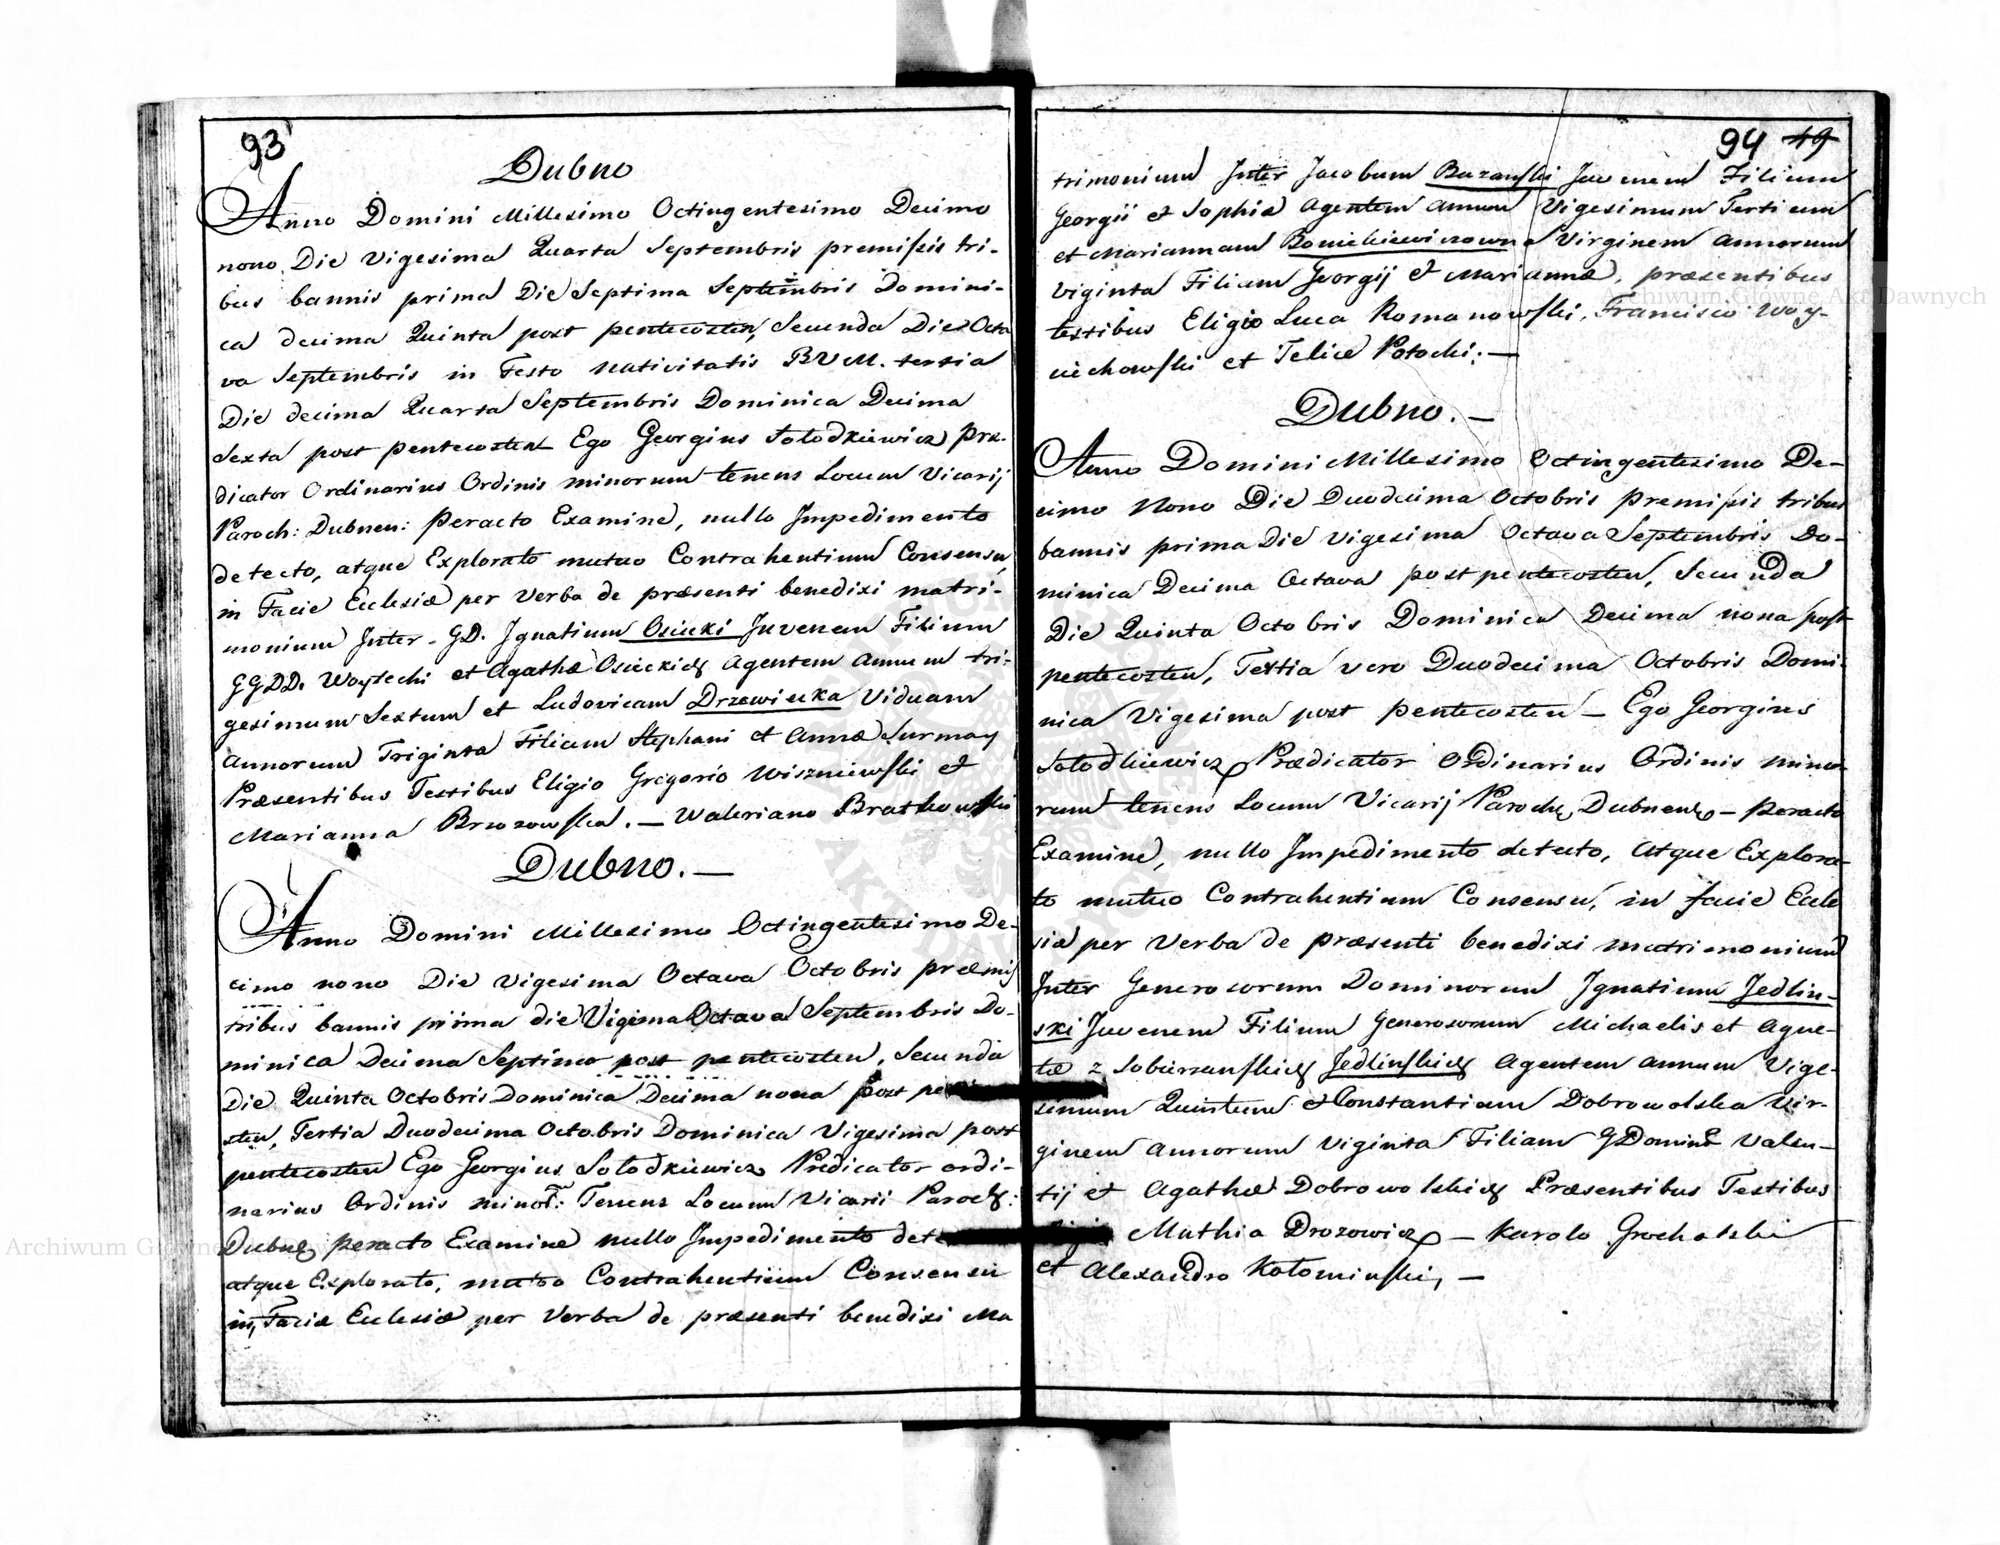 93
Dubno
Anno Domini Millesimo Octingentesimo Decimo
nono Die Vigesima Quarta Septembris premissis tri-
bus bannis prima Die Septima Septembris Domini-
ca decima Quinta post pentecosten, Secunda Die Octa
va Septembris in Festo Nativitatis BVM. tertia
Die decima Quarta Septembris Dominica Decima
Sexta post pentecosten Ego Georgius Sołodkiewicz Præ-
dicator Ordinarius Ordinis minorum tenens Locum Vicarij
Paroch: Dubnen: Peracto Examine, nullo Impedimento
detecto, atque Explorato mutuo Contrahentium Consensu,
in Facie Ecclesiæ per Verba de præsenti benedixi matri-
monium Inter GD. Ignatium Osiecki Juvenem Filium
GGDD. Woyciechi et Agathæ Osieckich Agentem Annum tri-
gesimum Sextum et Ludovicam Drzewiecka Viduam
Annorum Triginta Filiam Stephani et Annæ Surmay
Præsentibus Testibus Eligio Gregorio Wiszniewski et
Marianna Brzozowska. — Waleriano Bratkowski
Dubno. —
Anno Domini Millesimo Octingentesimo De-
cimo nono Die Vigesima Octava Octobris præmis
tribus bannis prima die Vigesima Octava Septembris Do-
minica Decima Septima post pentecosten, Secunda
Die Quinta Octobris Dominica Decima nona post pe
sten, Tertia Duodecima Octobris Dominica Vigesima post
pentecosten Ego Georgius Sołodkiewicz Predicator ordi-
narius Ordinis minor: Tenens Locum Vicarii Paroch:
Dubne peracto Examine nullo Impedimento dete
atque Explorato, mutuo Contrahentium Consensu
in Faciæ Ecclesiæ per Verba de præsenti benedixi Ma
94 49
trimonium Inter Jacobum Buzanski Juvenem Filium
Georgii et Sophiæ Agentem Annum Vigesimum Tertium
et Mariannam Bonickiewiczowna Virginem Annorum
Viginta Filiam Georgij et Mariannæ, præsentibus
testibus Eligio Luca Romanowski, Francisco Woy-
ciechowski et Felice Potocki. —
Dubno. —
Anno Domini Millesimo Octingentesimo De-
cimo Nono Die Duodecima Octobris Premissis tribus
bannis prima Die Vigesima Octava Septembris Do-
minica Decima Octava post pentecosten, Secunda
Die Quinta Octobris Dominica Decima nona post
pentecosten, Tertia vero Duodecima Octobris Domi-
nica Vigesima post Pentecosten — Ego Georgius
Sołodkiewicz Prædicator Ordinarius Ordinis mino-
rum tenens Locum Vicarij Paroch Dubnens — Peracto
Examine, nullo Impedimento detecto, Atque Explora-
to mutuo Contrahentium Consensu, in facie Eccle
siæ per Verba de præsenti benedixi matrimonium
Inter Generosorum Dominorum Ignatium Jedlin-
ski Juvenem Filium Generosorum Michaelis et Agne-
tæ z Sobieszanskich Jedlinskich Agentem Annum Vige-
simum Quintum et Constantiam Dobrowolska Vir-
ginem Annorum Viginta Filiam GDominæ Valen-
tij et Agathæ Dobrowolskich Præsentibus Testibus
Mathia Drozowicz — Karolo Grochalski
et Alexandro Kołominski, —
Archiwum Główne Akt Dawnych